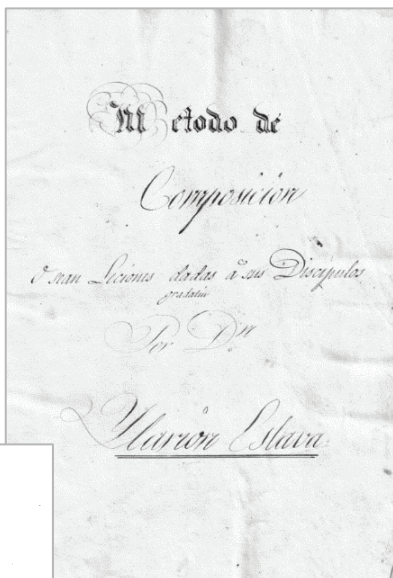 Metodo de
Composicion
o sean Leciones dadas á sus Discipulos
gradatin
Por Dn
Ylarion Eslava.